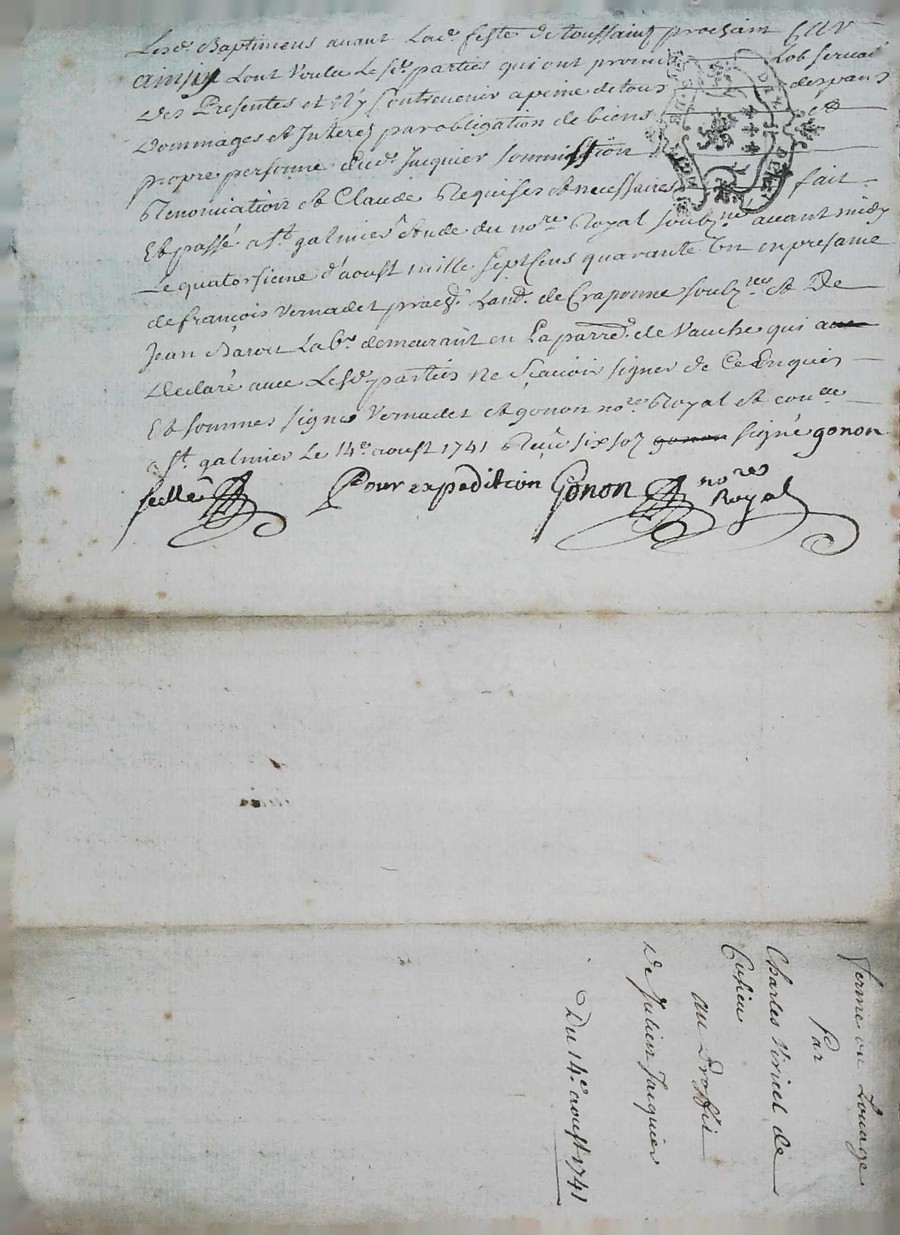 Lesd. Baptimens avant Lad. feste de toussaint prochain Car
ainsin Lont Voulu Lesd. parties qui ont promis Lobservaõn
des Presentes et N'y Contrevenir a peine de tous despans
Dommages et Interez par obligation de biens et
propre personne dud. Jacquier Soummission
Renonciation et Clauses Requises et necessaires fait
Et passé a St. galmier etude du nore. Royal soubz.né avant midy
Le quatorsieme d'aoust mille Septcens quarante Un en presance
de françois Vernadet prae͠d. Land. de Craponne soubz.né et De
Jean Barou Lab.r demeurant en La parr.e de Vauche qui
Declaré avec Lesd. parties Ne Sçavoir signer de Ce Enquis
Et sommés signé Vernadet et gonon no.re Royal et con.lle
a St. galmier Le 14e. aoust 1741 Reçu six sols gonon signé gonon
scellé Pour expedition Gonon no.re Royal
ferme ou Louage
Par
Charles Viricel de
Cusieu
au Proffit
De Julien Jacquier
Du 14e. aoust 1741